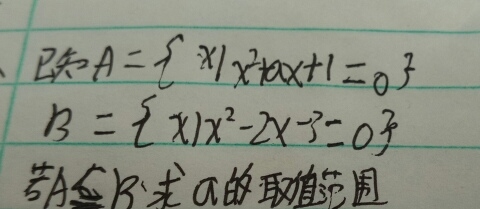 已知A={x|x²+ax+1=0}
B={x|x²-2x-3=0}
若A⊆B,求a的取值范围